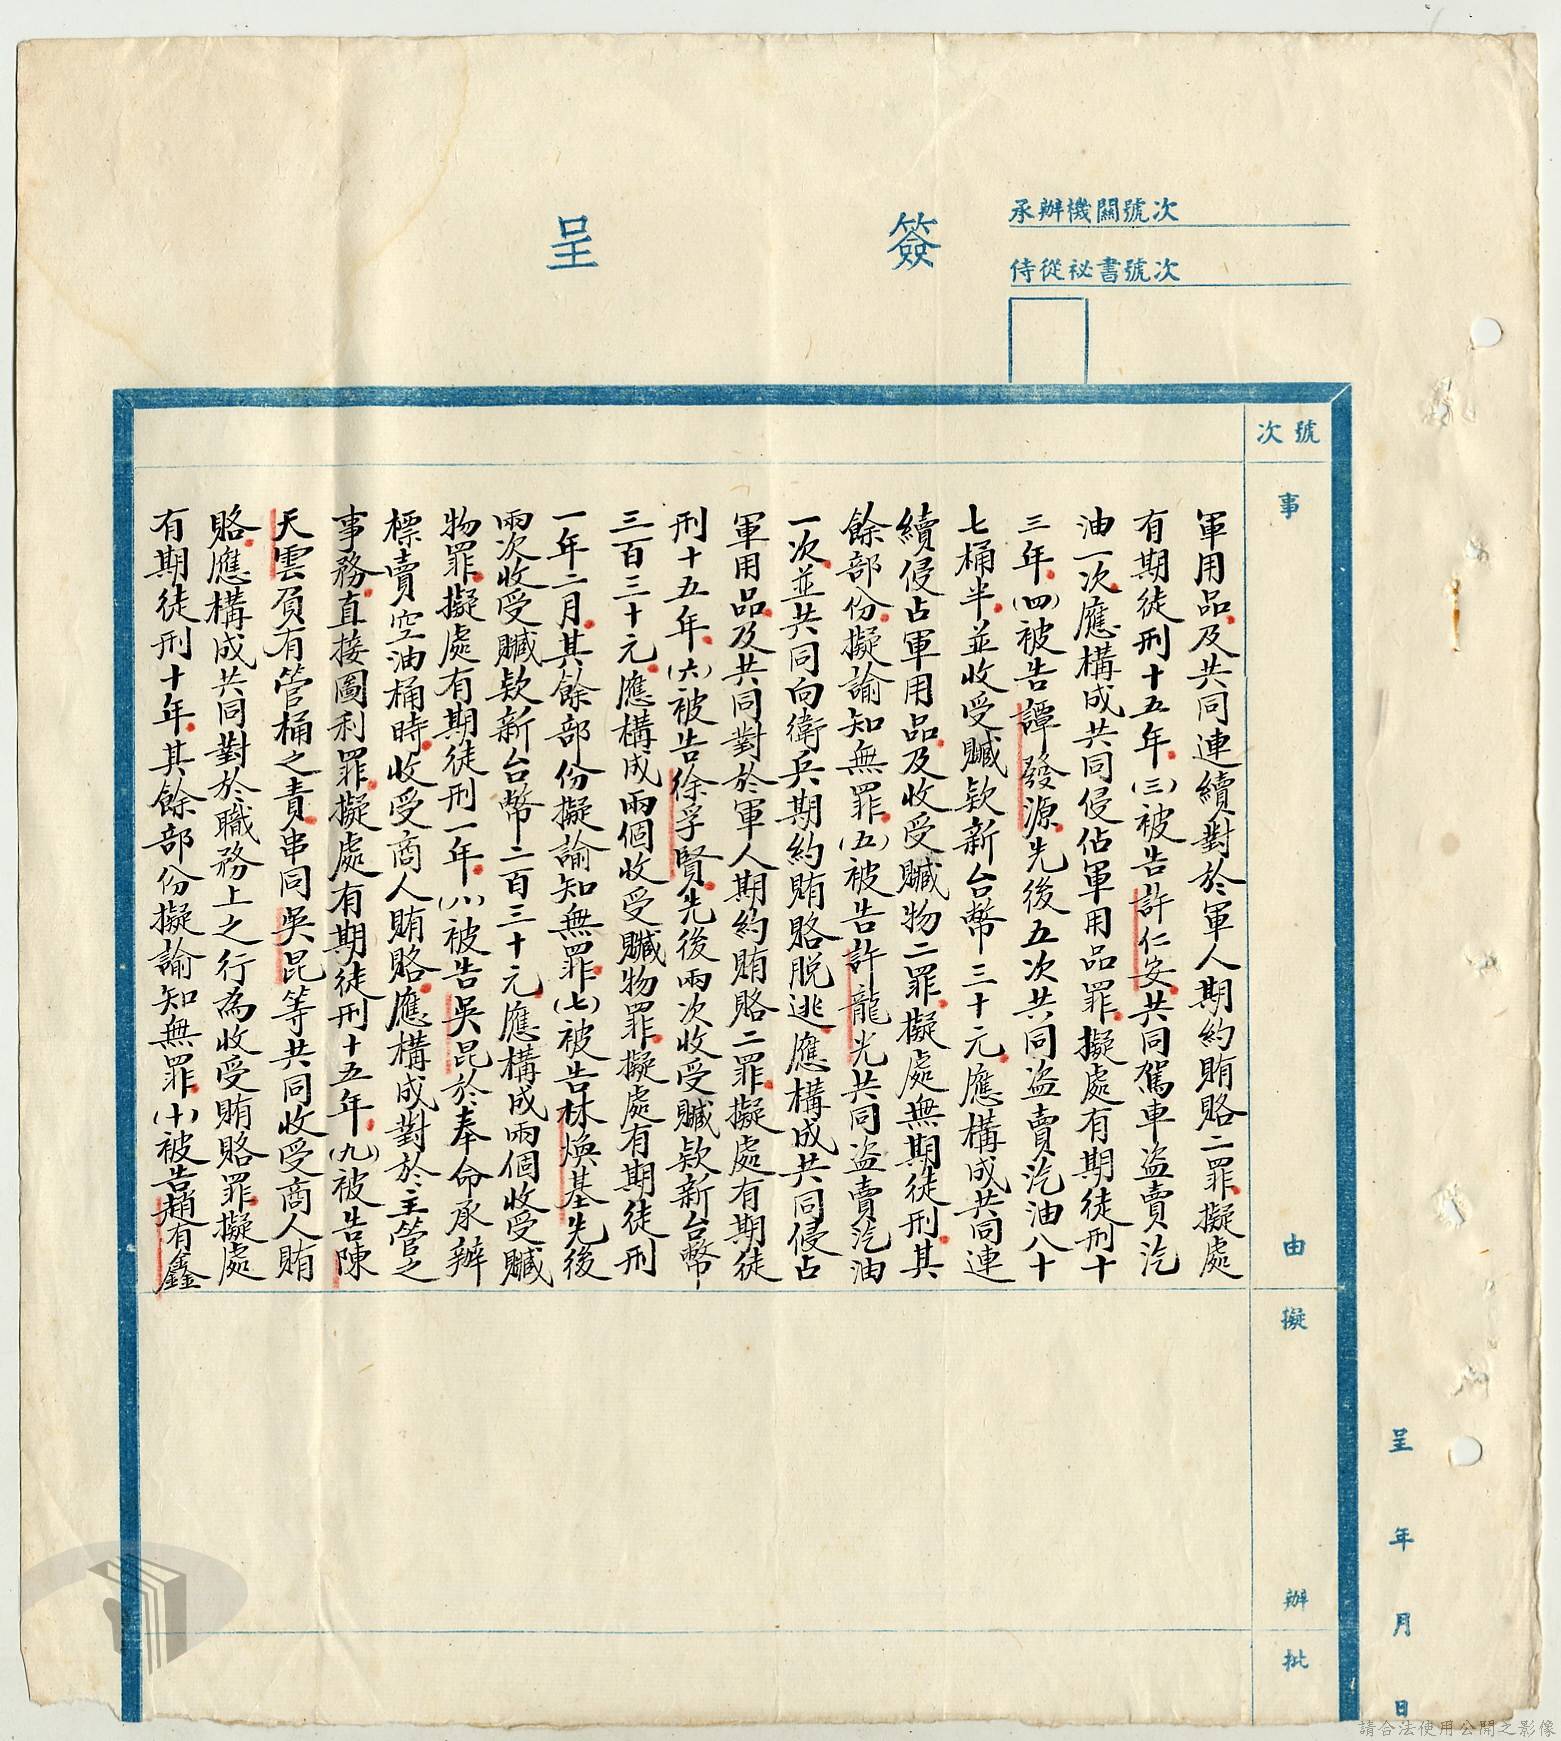 簽呈
承辦機關號次
侍從祕書號次
號次
事由
擬辦
批
呈 年 月 日
軍用品及共同連續對於軍人期約賄賂二罪擬處
有期徒刑十五年(三)被告許仁安共同駕車盜賣汽
油一次應構成共同侵佔軍用品罪擬處有期徒刑十
三年(四)被告譚發源先後五次共同盜賣汽油八十
七桶半並收受贓款新台幣三十元應構成共同連
續侵占軍用品及收受贓物二罪擬處無期徒刑其
餘部份擬諭知無罪(五)被告許龍光共同盜賣汽油
一次並共同向衛兵期約賄賂脫逃應構成共同侵占
軍用品及共同對於軍人期約賄賂二罪擬處有期徒
刑十五年(六)被告徐孚賢先後兩次收受贓款新台幣
三百三十元應構成兩個收受贓物罪擬處有期徒刑
一年二月其餘部份擬諭知無罪(七)被告林煥基先後
兩次收受贓款新台幣二百三十元應構成兩個收受贓
物罪擬處有期徒刑一年(八)被告吳昆於奉命承辦
標賣空油桶時收受商人賄賂應構成對於主管之
事務直接圖利罪擬處有期徒刑十五年(九)被告陳
天雲負有管桶之責串同吳昆等共同收受商人賄
賂應構成共同對於職務上之行為收受賄賂罪擬處
有期徒刑十年其餘部份擬諭知無罪(十)被告趙有鑫
請合法使用公開之影像